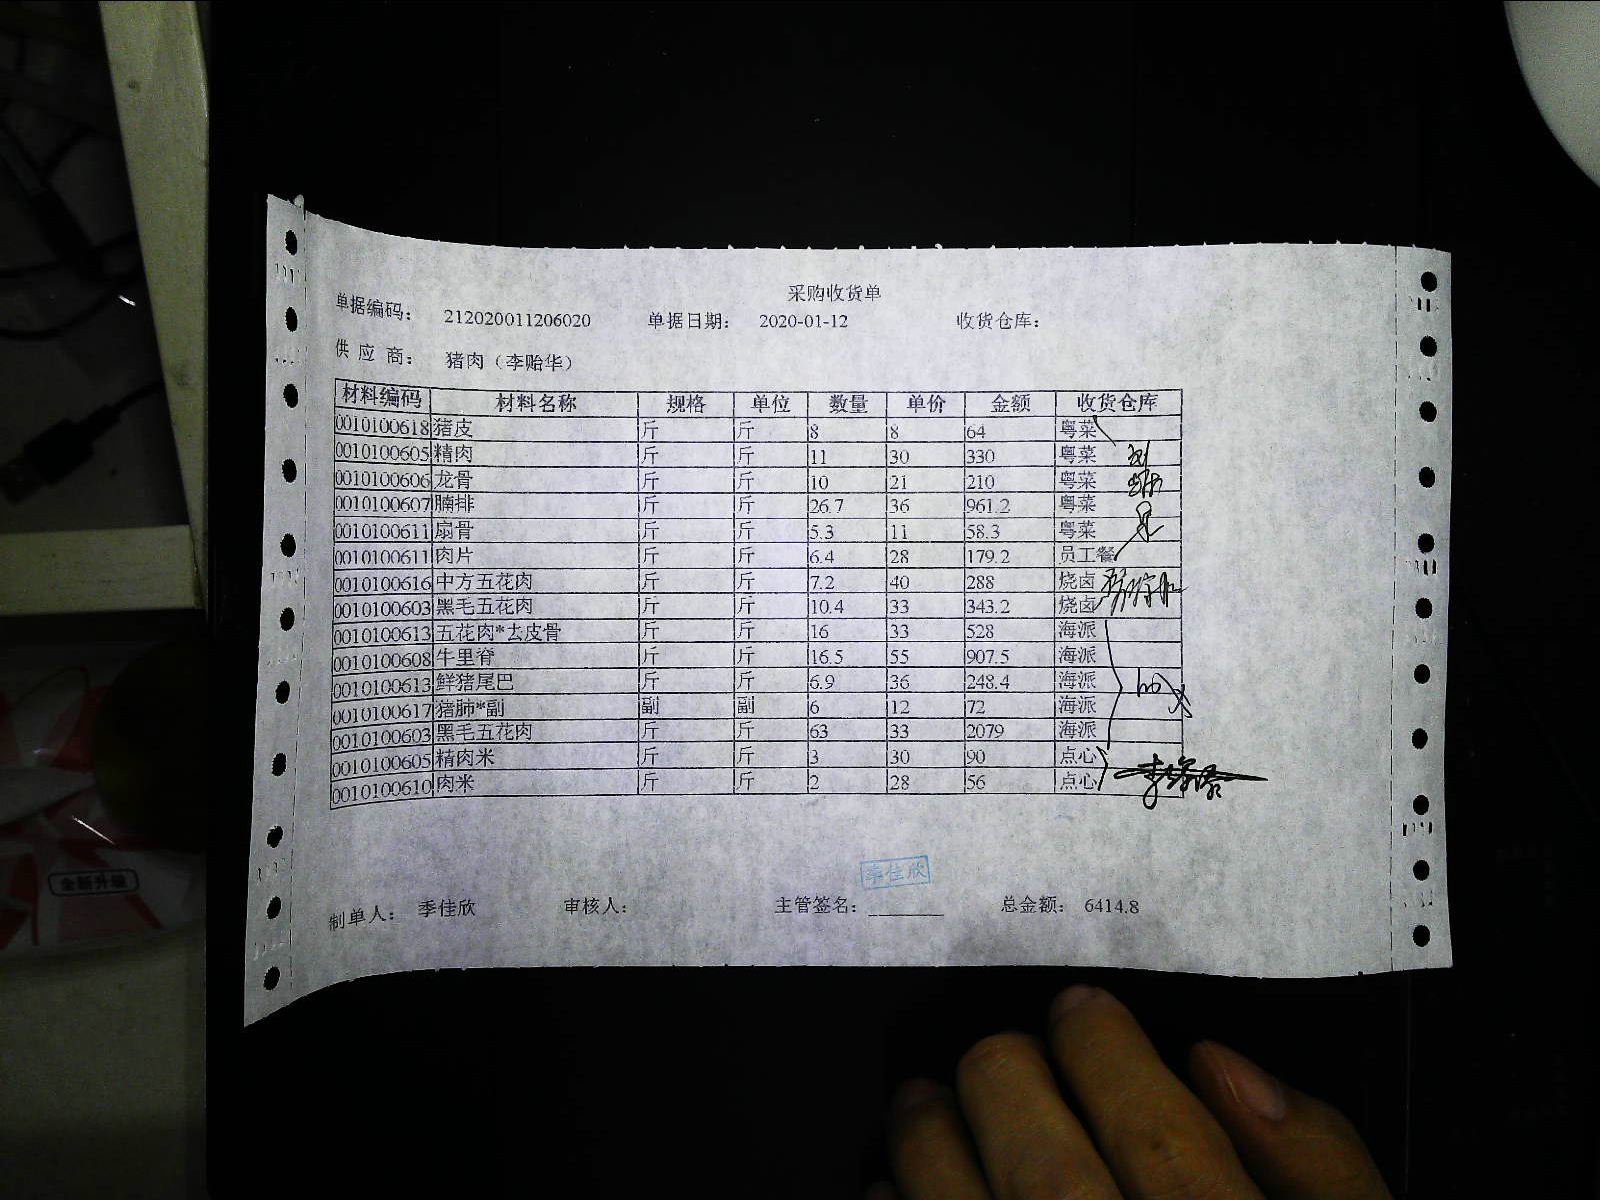 采购收货单
单据编码： 212020011206020 单据日期： 2020-01-12 收货仓库：
供应商： 猪肉（李贻华）
材料编码 材料名称 规格 单位 数量 单价 金额 收货仓库
0010100618 猪皮 斤 斤 8 8 64 粤菜
0010100605 精肉 斤 斤 11 30 330 粤菜
0010100606 龙骨 斤 斤 10 21 210 粤菜
0010100607 腩排 斤 斤 26.7 36 961.2 粤菜
0010100611 扇骨 斤 斤 5.3 11 58.3 粤菜
0010100611 肉片 斤 斤 6.4 28 179.2 员工餐
0010100616 中方五花肉 斤 斤 7.2 40 288 烧卤
0010100603 黑毛五花肉 斤 斤 10.4 33 343.2 烧卤
0010100613 五花肉*去皮骨 斤 斤 16 33 528 海派
0010100608 牛里脊 斤 斤 16.5 55 907.5 海派
0010100613 鲜猪尾巴 斤 斤 6.9 36 248.4 海派
0010100617 猪肺*副 副 副 6 12 72 海派
0010100603 黑毛五花肉 斤 斤 63 33 2079 海派
0010100605 精肉米 斤 斤 3 30 90 点心
0010100610 肉米 斤 斤 2 28 56 点心
季佳欣
制单人： 季佳欣 审核人： 主管签名： 总金额： 6414.8
全新升级